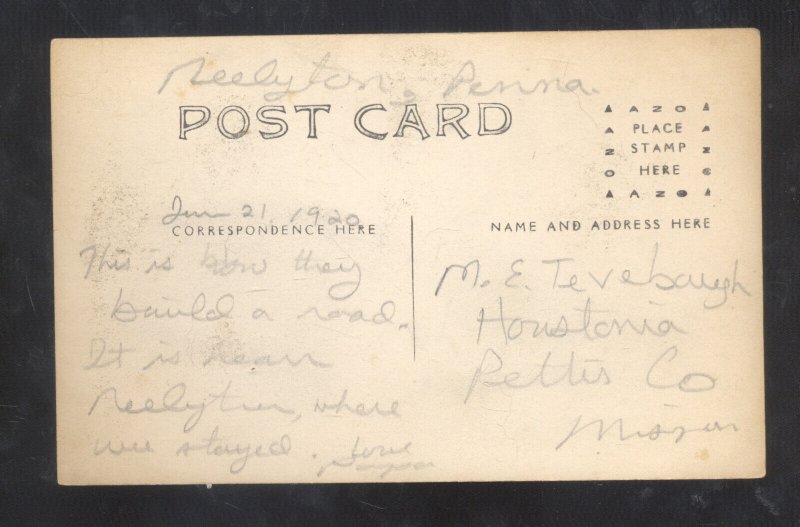 Neelyton, Penna.
POST CARD
AZO
PLACE
STAMP
HERE
AZO
Jun 21, 1920
CORRESPONDENCE HERE
NAME AND ADDRESS HERE
This is how they
build a road.
It is near
Neelyton, where
we stayed. Love
M. E. Tevebaugh
Houstonia
Pettis Co
Missouri